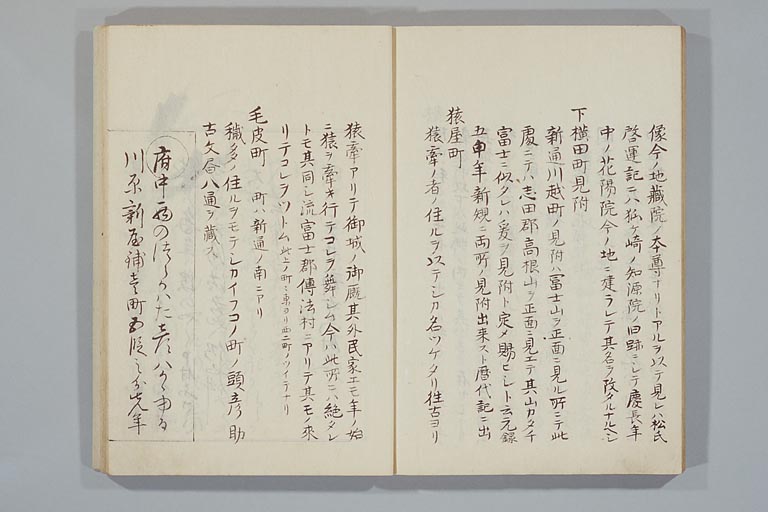 像今ノ地藏院ノ本尊ナリトアルヲ以テ見レハ松氏
啓運記ニハ狐ヶ崎ノ知源院ノ旧跡ニシテ慶長年
中ノ花陽院今ノ地ニ建ラレテ其名ヲ改タルナルヘシ
下横田町見附
新通川越町ノ見附ハ冨士山ヲ正面ニ見ル所ニテ此
處ニテハ志田郡高根山ヲ正面ニ見エテ其山カタチ
冨士ニ似タレハ爰ヲ見附ト定メ賜ヒシト云元録
五申年新規ニ両所ノ見附出来スト暦代記ニ出
猿屋町
猿牽ノ者ノ住ルヲ以テシカ名ツケタリ往古ヨリ
猿牽アリテ御城ノ御厩其外民家エモ年ノ始
ニ猿ヲ牽キ行テコレヲ舞シム今ハ此所ニハ絶タレ
トモ其同シ流富士郡傳法村ニアリテ其モノ來
リテコレヲツトム此上ノ町ミ東ヨリ西二町ノツイテナリ
毛皮町 町ハ新通ノ南ニアリ
穢多ノ住ルヲモテシカイフコノ町ノ頭彦助
古文書八通ヲ藏ス
府中
川原新屋鋪壱町五段